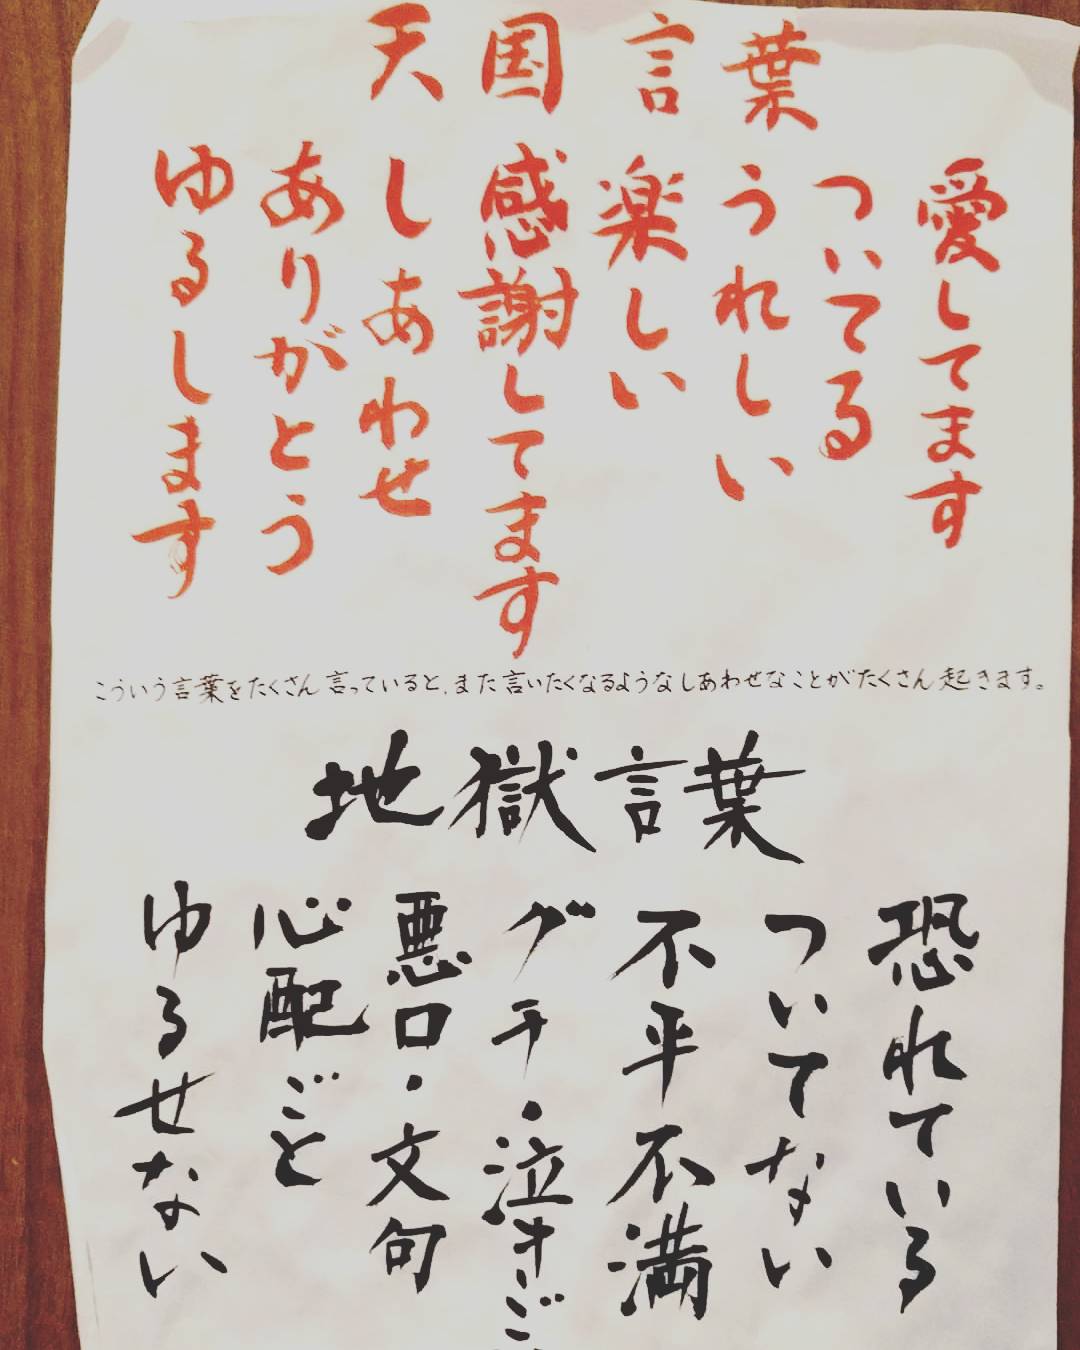 天国言葉
愛してます
ついてる
うれしい
楽しい
感謝してます
しあわせ
ありがとう
ゆるします
こういう言葉をたくさん言っていると、また言いたくなるようなしあわせなことがたくさん起きます。
地獄言葉
恐れている
ついてない
不平不満
グチ・泣きご
悪口・文句
心配ごと
ゆるせない